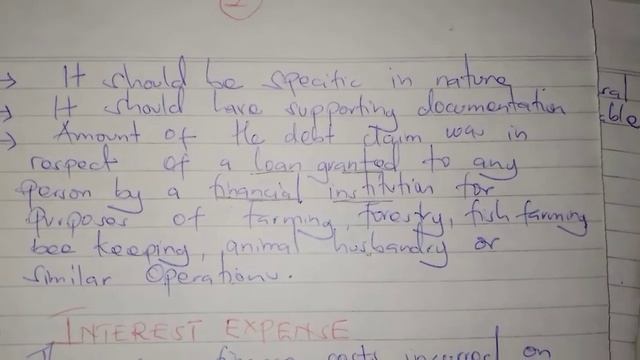 → It should be specific in nature
→ It should have supporting documentation
→ Amount of the debt claim was in
respect of a loan granted to any
person by a financial institution for
purposes of farming, forestry, fish farming
bee keeping, animal husbandry or
similar operations.
INTEREST EXPENSE
costs incurred on